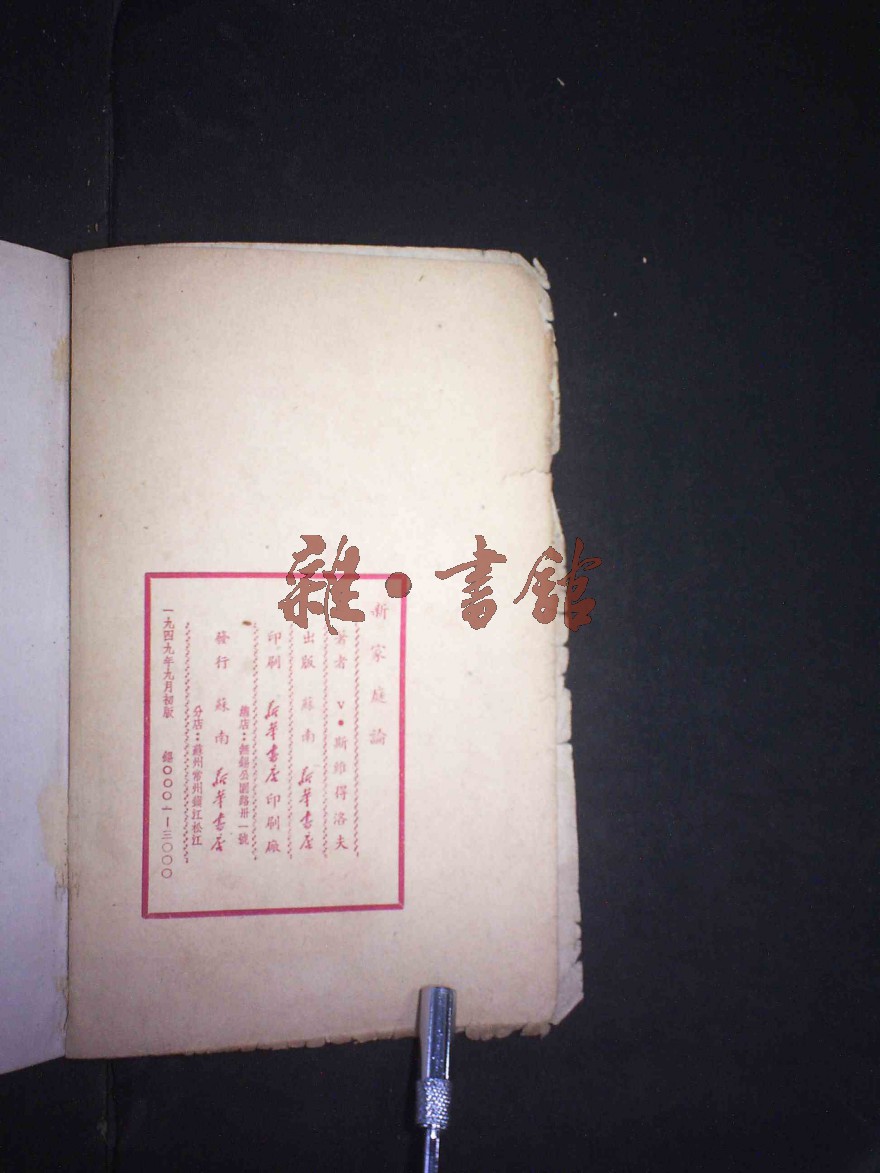 新家庭論
著者 V·斯維得洛夫
出版 蘇南新華書店
印刷 新華書店印刷廠
總店：無錫公園路卅一號
發行 蘇南新華書店
分店：蘇州常州鎮江松江
一九四九年九月初版 錫〇〇〇一—三〇〇〇
雜·書館